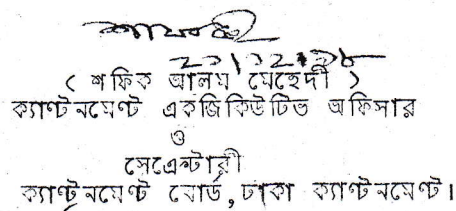 ( শফিক আলম মেহেদী )
ক্যাণ্টনমেণ্ট একজিকিউটিভ অফিসার
ও
সেক্রেটারী
ক্যাণ্টনমেণ্ট বোর্ড, ঢাকা ক্যাণ্টনমেণ্ট।